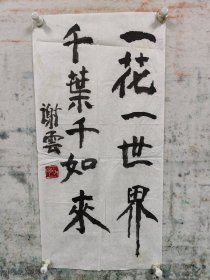 一花一世界
千葉千如來
謝雲